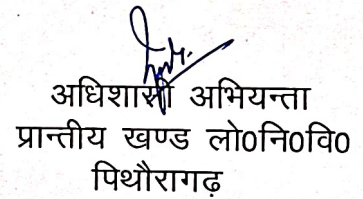 अधिशासी अभियन्ता
प्रान्तीय खण्ड लो0नि0वि0
पिथौरागढ़